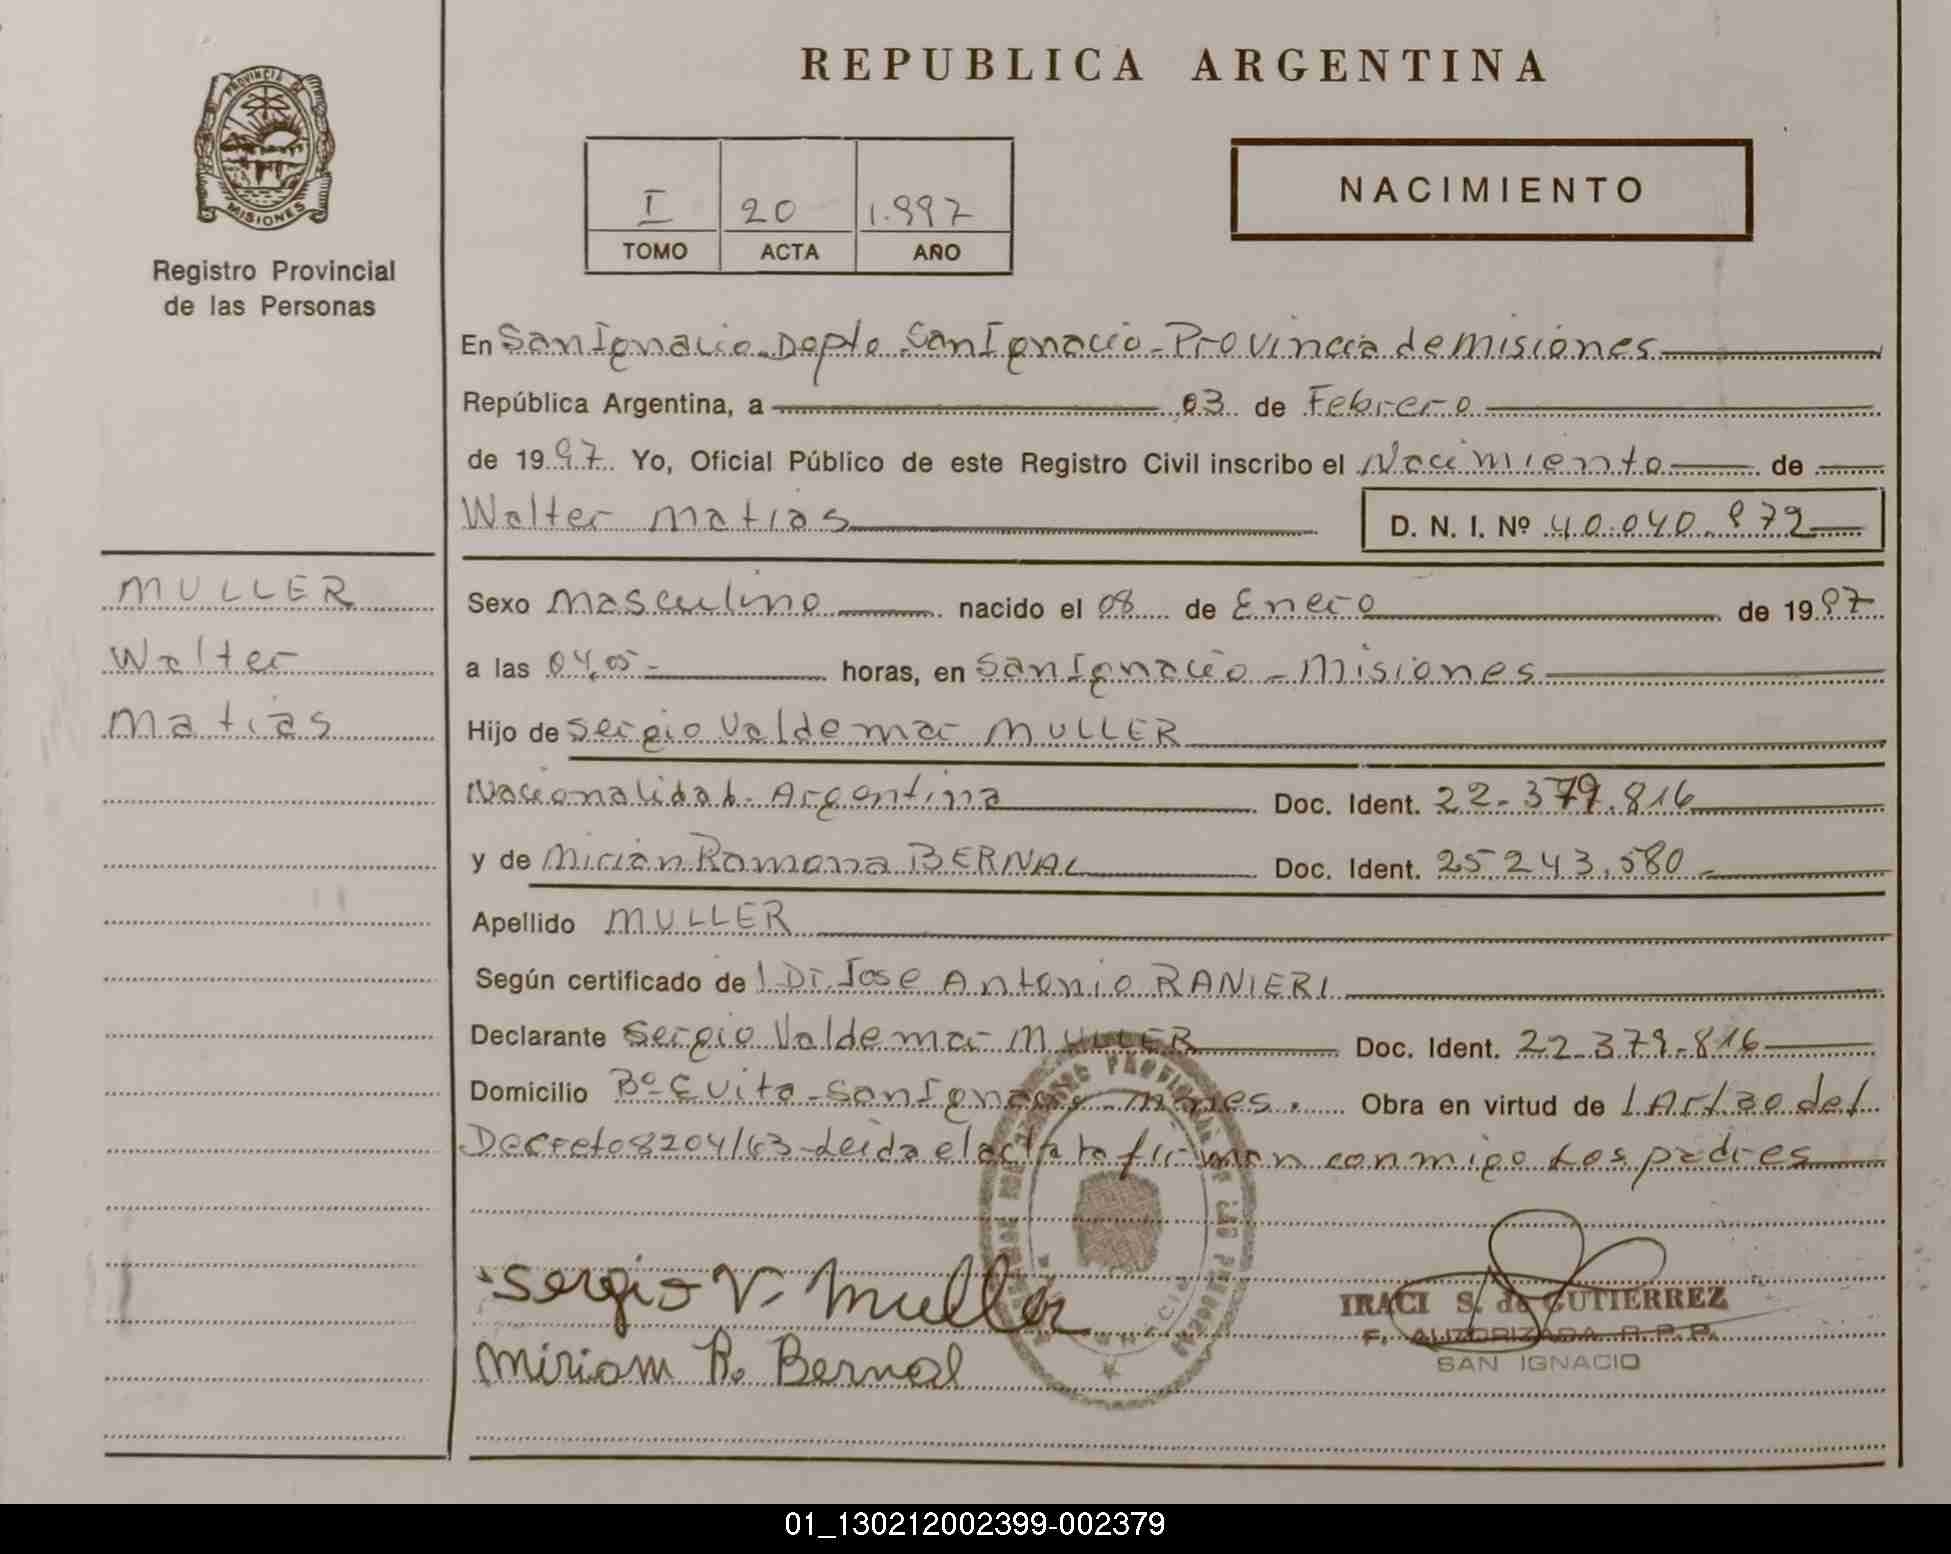 PROVINCIA DE
MISIONES
Registro Provincial
de las Personas
REPUBLICA ARGENTINA
I 20 1.997
TOMO ACTA AÑO
NACIMIENTO
En San Ignacio - Dpto San Ignacio - Provincia de misiones
República Argentina, a 03 de Febrero
de 1997 Yo, Oficial Público de este Registro Civil inscribo el Nacimiento de
Walter Matias D. N. I. Nº 40.040.972
MULLER
Walter
Matias
Sexo Masculino nacido el 08 de Enero de 1997
a las 04,05- horas, en San Ignacio - Misiones
Hijo de Sergio Valdemar MULLER
Nacionalidad - Argentina Doc. Ident. 22-379.816
y de Mirian Ramona BERNAL Doc. Ident. 25.243.580-
Apellido MULLER
Según certificado de l Dr. Jose Antonio RANIERI
Declarante Sergio Valdemar MULLER Doc. Ident. 22-379-816
Domicilio Bº Evita - San Ignacio - Mnes. Obra en virtud de l Art 30 del
Decreto 8204/63 - Leida el acta la firman conmigo Los padres
Sergio V. Muller
Miriam R. Bernal
IRACI S. de GUTIERREZ
F. AUTORIZADA R.P.P.
SAN IGNACIO
01_130212002399-002379